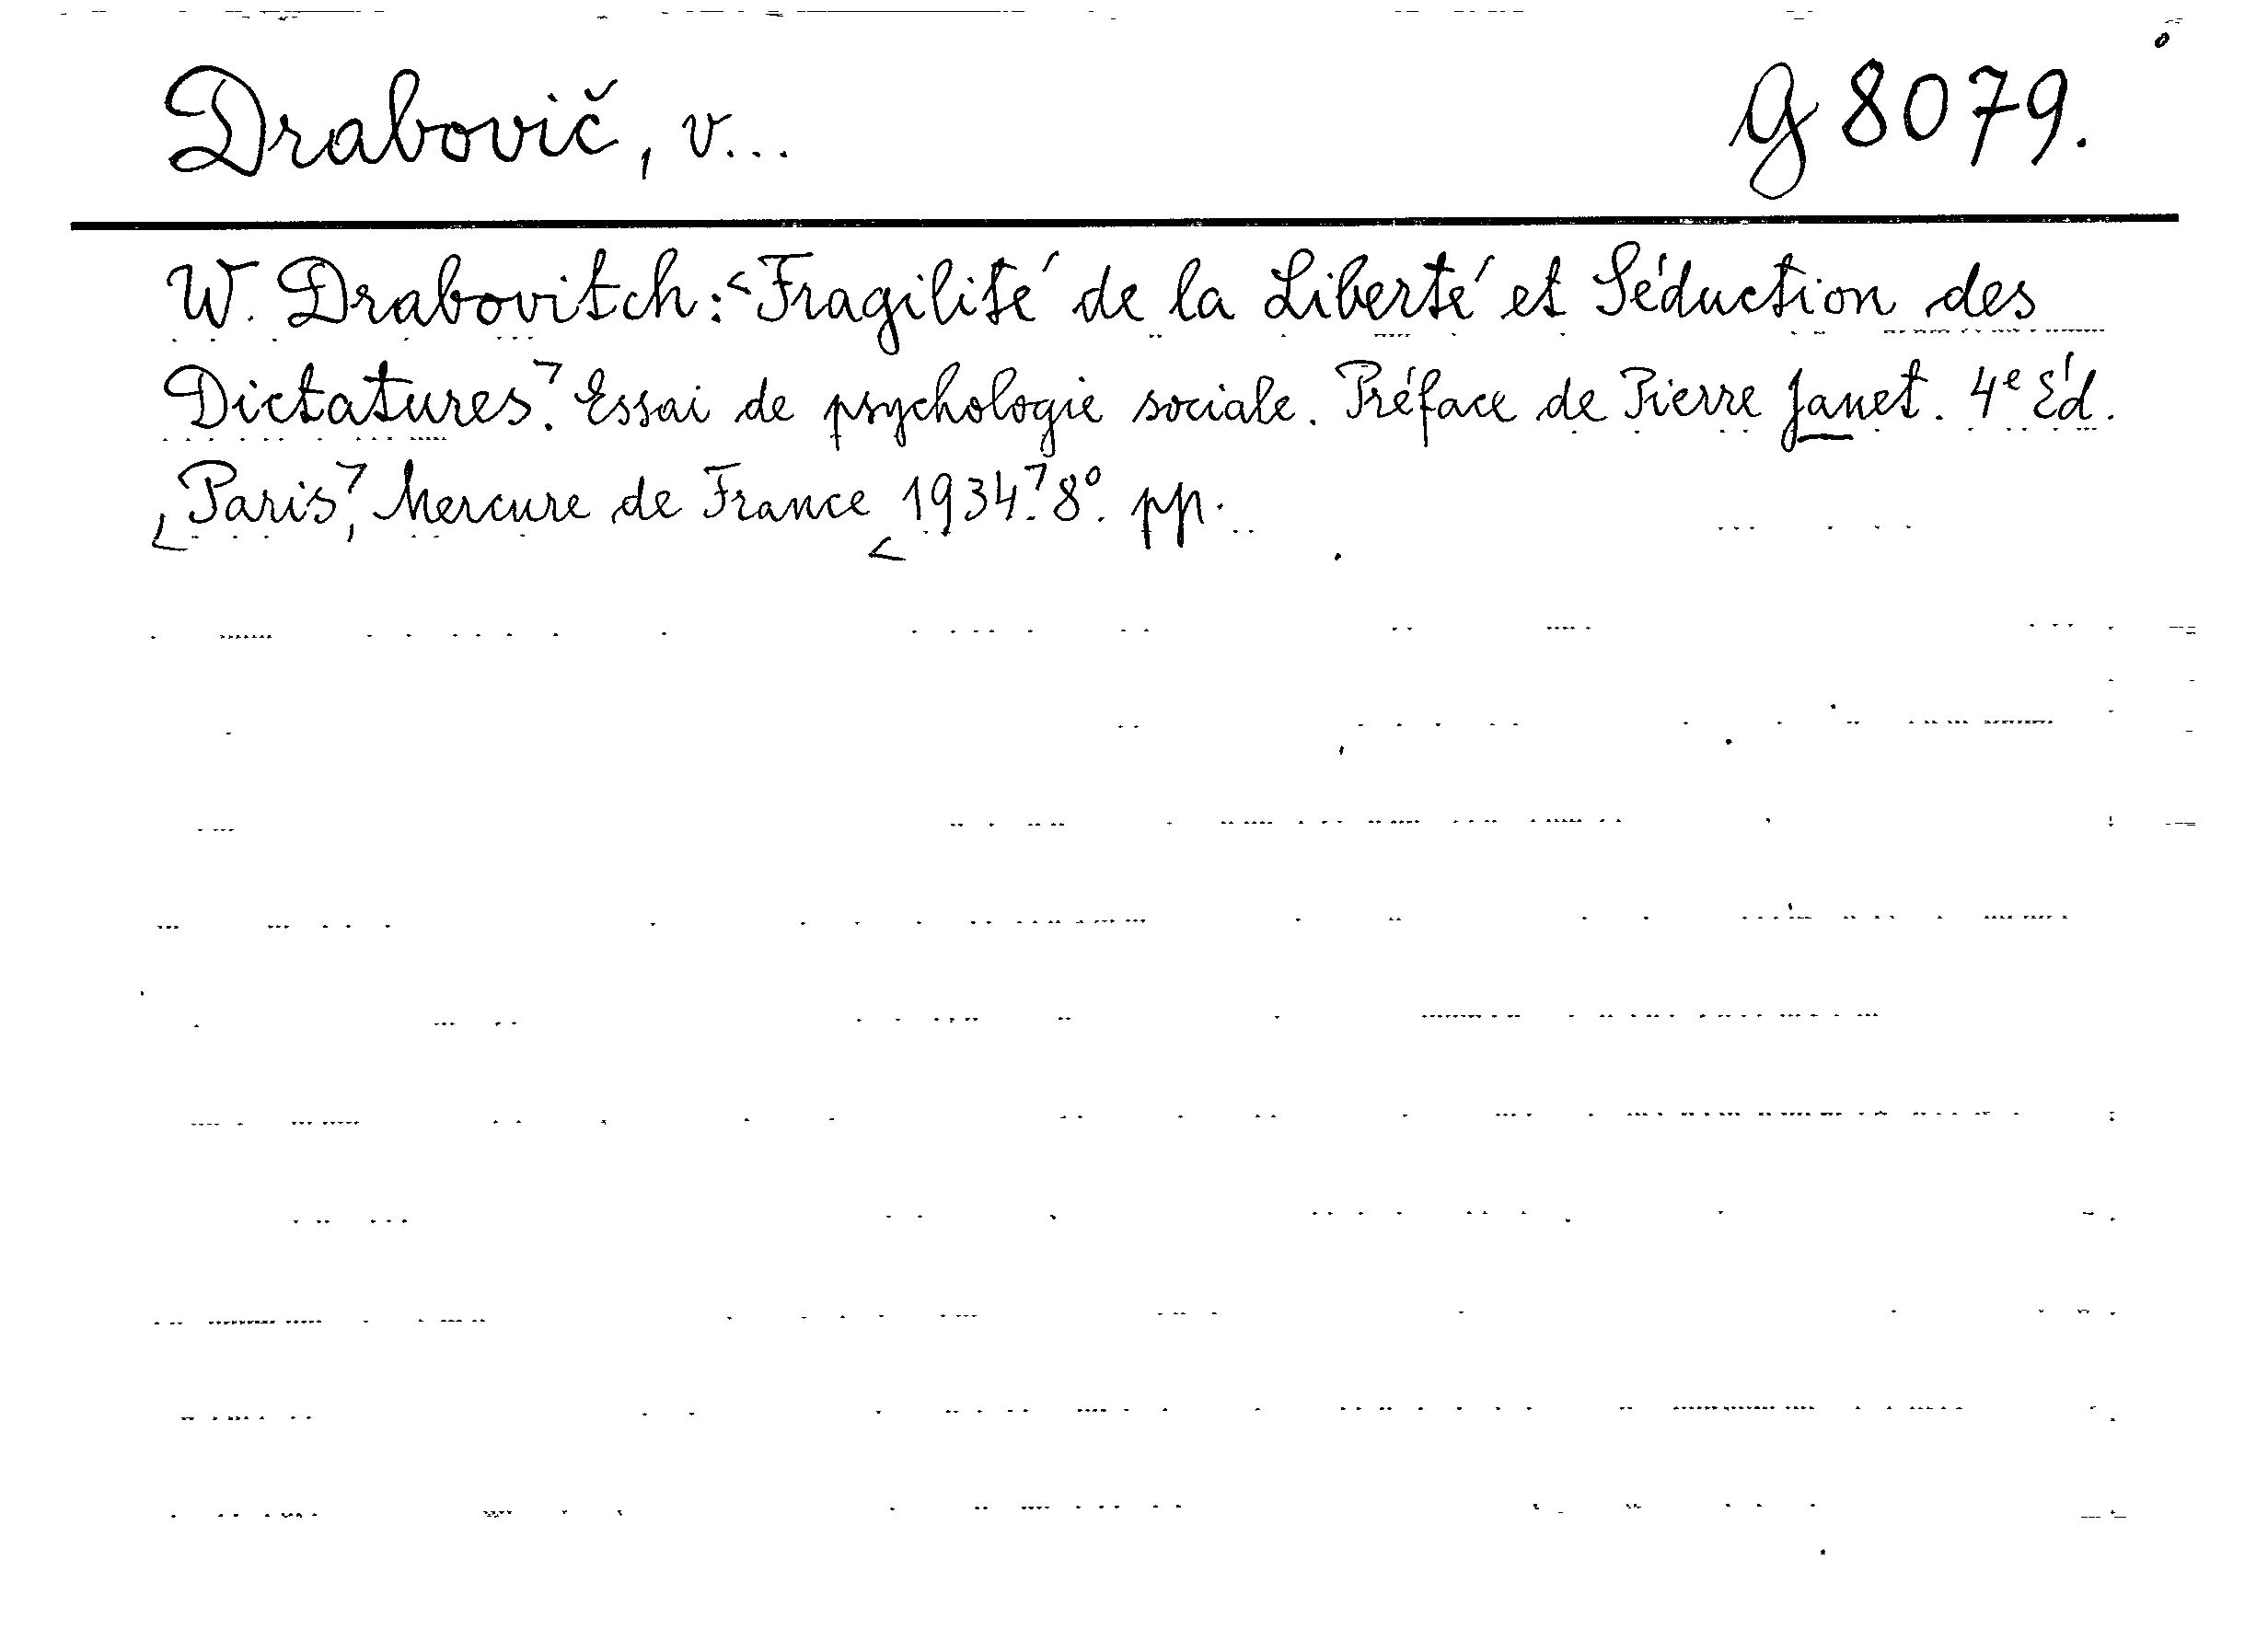 Drabovič, V... G 8079.
W. Drabovitch: <Fragilité de la Liberté et Séduction des
Dictatures.> Essai de psychologie sociale. Préface de Pierre Janet. 4e Éd.
<Paris>, Mercure de France <1934.> 8°. pp.